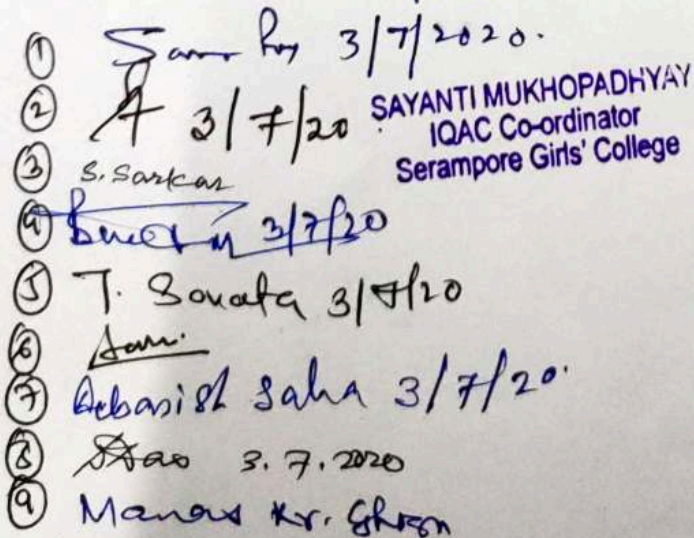 ① 3/7/2020.
② 3/7/20
SAYANTI MUKHOPADHYAY
IQAC Co-ordinator
Serampore Girls' College
③ S. Sarkar
④ 3/7/20
⑤ T. Sonata 3/7/20
⑥
⑦ Debasish Saha 3/7/20.
⑧ 3.7.2020
⑨ Manas Kr. Ghosh